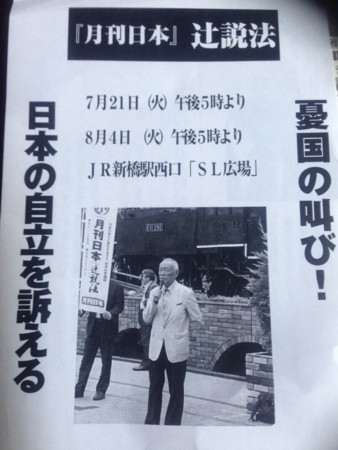 『月刊日本』辻説法
7月21日（火）午後5時より
8月4日（火）午後5時より
ＪＲ新橋駅西口「ＳＬ広場」
憂国の叫び！
日本の自立を訴える
月刊日本
辻説法
月刊日本